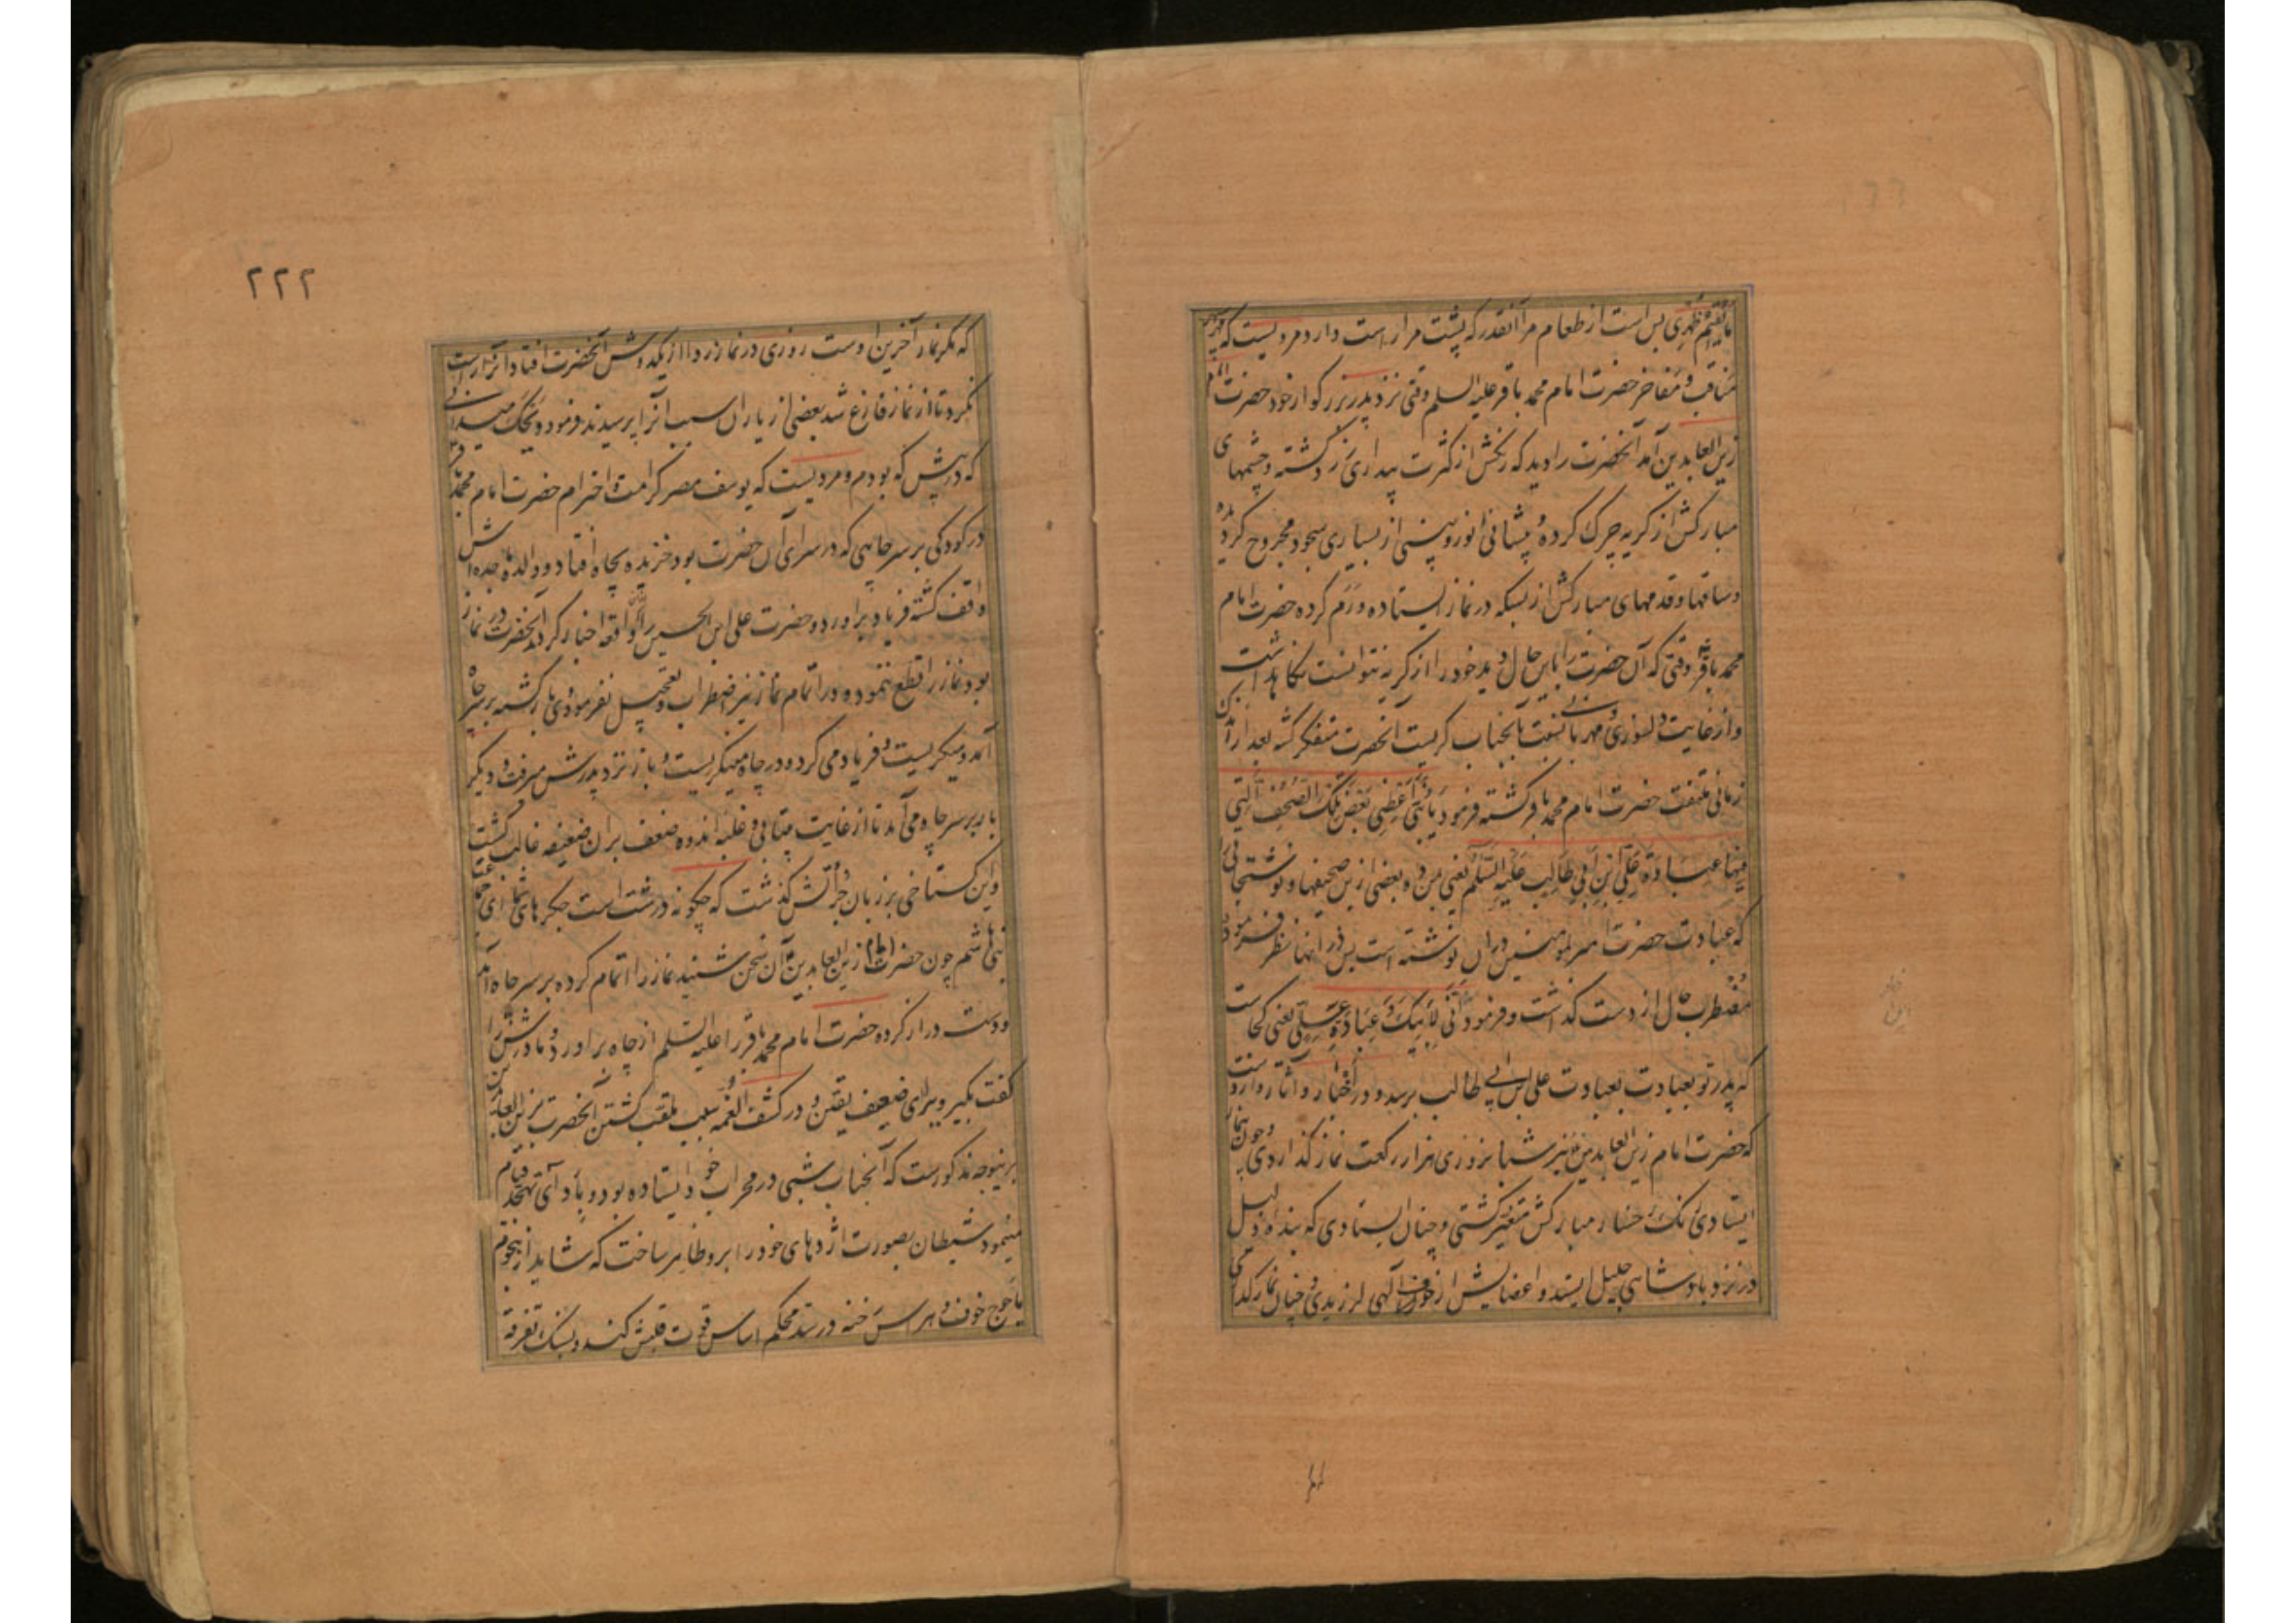 ما یقیم ظهری بس است از طعام مرا آنقدر که پشت مرا راست دارد و مرویست که
مناقب و مفاخر حضرت امام محمد باقر علیه السلم وقتی نزد پدر بزرکوار خود حضرت امام
زین العابدین آمد آنحضرت را دید که رنکش از کثرت بیداری زرد کشته و چشمهای
مبارکش از کریه چرک کرده و پیشانی انور و بینی از بسیاری سجود مجروح کردیده
و ساقها و قدمهای مبارکش از بسکه در نماز ایستاده ورم کرده حضرت امام
محمد باقر وقتی که آن حضرت را باین حال دید خود را از کریه نتوانست نکاهداشت
و از غایت دلسوزی و مهربانی نسبت بآنجناب کریست آنحضرت متفکر کشته بعد از آنکه
زمانی ملتفت حضرت امام محمد باقر کشته فرمود یا بنی اعطنی بعض تلک الصحف التی
فیها عبادة علی ابن ابی طالب علیه السلم یعنی من ده بعضی ازین صحیفها و نوشتجاتی را
که عبادت حضرت امیر المومنین در آن نوشته است پس در انها نظر فرمود
مضطرب حال از دست کذاشت و فرمود انی لابیک و عبادة علی یعنی کجاست
که پدر تو بعبادت بعبادت علی بن ابی طالب برسد و در اخبار و آثار وارد است
که حضرت امام زین العابدین نیز شبانروزی هزار رکعت نماز کذاردی و چون بنماز
ایستادی رنک رخسار مبارکش متغیر کشتی و چنان ایستادی که بنده ذلیل
در نزد پادشاهی جلیل ایستد و اعضایش از خوف الهی لرزیدی و چنان نماز کذاردی
۲۲۲
که مکر نماز آخرین اوست روزی در نماز ردا از یکدوش آنحضرت افتاد آنرا راست
نکرد تا از نماز فارغ شد بعضی از یاران سبب آنرا پرسیدند فرمود ویحک میدانی
که در پیش که بودم و مرویست که یوسف مصر کرامت و احترام حضرت امام محمد باقر
در کودکی بر سر چاهی که در سرای آن حضرت بود خزیده بچاه افتاد و والده ماجده اش
واقف کشته فریاد براورد و حضرت علی ابن الحسین را از آن واقعه اخبار کرد آنحضرت در نماز
بود نماز را قطع ننموده و در اتمام نماز نیز اضطراب و تعجیل نفرمود وی باز کشته بر سر چاه
آمد و میکریست و فریاد می کرد و در چاه مینکریست و باز نزد پدرش میرفت و دیکر
بار بر سر چاه می آمد تا از غایت بیتابی و غلبه اندوه ضعف بران ضعیفه غالب کشت
و این کستاخی بر زبان جراتش کذشت که چکونه درشت است جکرهای شما ای جماعت
بنی هاشم چون حضرت امام زین العابدین آن سخن شنید نماز را اتمام کرده بر سر چاه آمد
و دست دراز کرده حضرت امام محمد باقر را علیه السلم از چاه براورد و مادرش را
کفت بکیر ویرا ای ضعیف یقین و در کشف الغمه سبب ملقب کشتن آنحضرت بزین العابدین
برینوجه مذکورست که آنجناب شبی در محراب خود ایستاده بود و بادای تهجد قیام
مینمود شیطان بصورت اژدهای خود را برو ظاهر ساخت که شاید از هجوم
یاجوج خوف و هراس رخنه در سد محکم اساس قوت قلبش کند و بسنک تفرقه